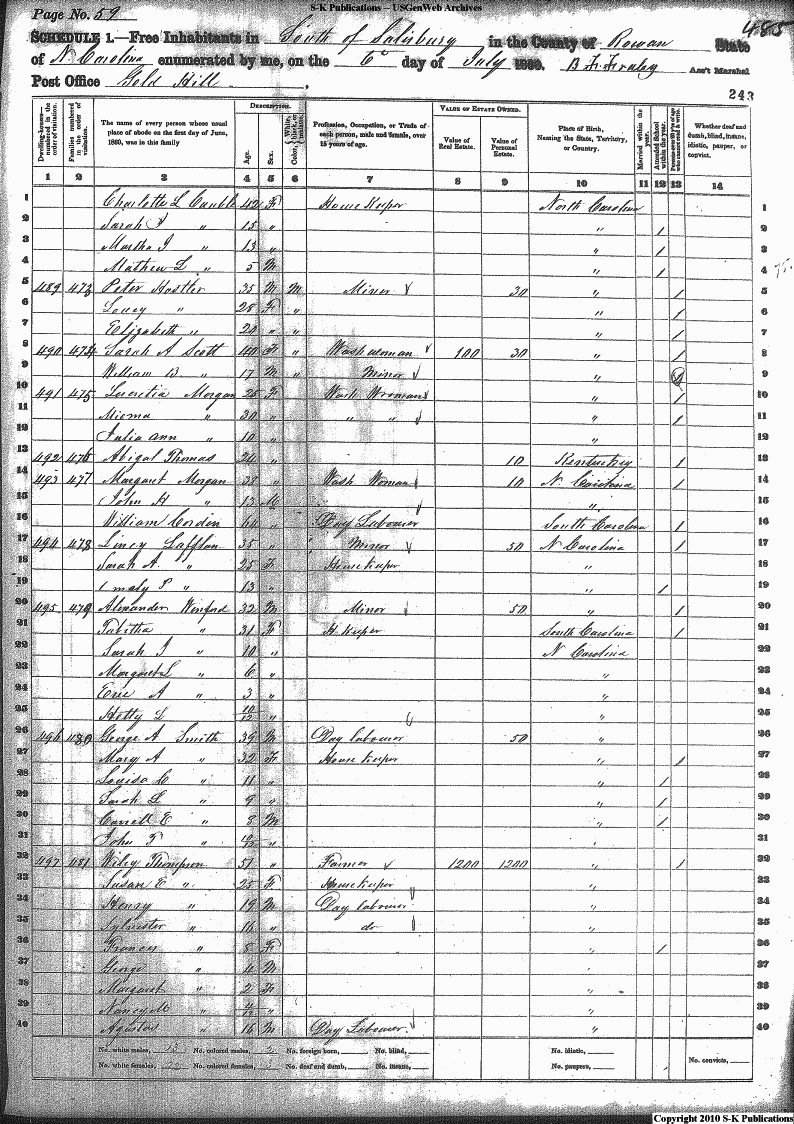 S-K Publications – USGenWeb Archives
Page No. 59
485
SCHEDULE 1.—Free Inhabitants in South of Salisbury in the County of Rowan State
of N Carolina enumerated by me, on the 6" day of July 1860. B F Fraley Ass't Marshal
Post Office Gold Hill,
243
Dwelling-houses—numbered in the order of visitation.
Families numbered in the order of visitation.
The name of every person whose usual place of abode on the first day of June, 1860, was in this family
DESCRIPTION.
Age.
Sex.
Color, White, black, or mulatto.
Profession, Occupation, or Trade of each person, male and female, over 15 years of age.
VALUE OF ESTATE OWNED.
Value of Real Estate.
Value of Personal Estate.
Place of Birth, Naming the State, Territory, or Country.
Married within the year.
Attended School within the year.
Whether deaf and dumb, blind, insane, idiotic, pauper, or convict.
1 2 3 4 5 6 7 8 9 10 11 12 13 14
1 Charlotte L Cauble 42 F House Keeper North Carolina 1
2 Sarah " 15 " " / 2
3 Martha J " 13 " " / 3
4 Mathew L " 5 M " / 4
5 489 473 Peter Hostler 35 M M Minor 30 " / 5
6 " 28 F " " / 6
7 Elizabeth " 20 " " " / 7
8 490 474 Sarah A Scott 40 F " Wash woman 100 30 " / 8
9 William B " 17 M " Minor " / 9
10 491 475 Lucretia Morgan 25 F Wash Woman " / 10
11 " 30 " " " " / 11
12 Julia ann " 10 " " 12
13 492 476 Abigal Thomas 24 " 10 Kentucky / 13
14 493 477 Margaret Morgan 38 " Wash Woman 10 N Carolina / 14
15 John H " 13 M " 15
16 William 64 " Day Labourer South Carolina / 16
17 494 478 35 " Minor 50 N Carolina / 17
18 Sarah A " 25 F House Keeper " 18
19 " 13 " " / 19
20 495 479 Alexander Winford 32 M Minor 50 " / 20
21 Tabitha " 31 F H Keeper South Carolina / 21
22 Sarah J " 10 " N Carolina 22
23 Margaret L " 6 " " 23
24 A " 3 " " 24
25 Hetty L 10/12 " " 25
26 496 480 George A Smith 39 M Day labourer 50 " 26
27 Mary A " 32 F House Keeper " / 27
28 Louisa C " 11 " " / 28
29 Sarah L " 9 " " / 29
30 " 8 M " / 30
31 John F " " 31
32 497 481 Wiley Thompson 51 " Farmer 1200 1200 " / 32
33 Susan E " 25 F House Keeper " 33
34 Henry " 19 M Day labourer " 34
35 Sylvester " " do " 35
36 Frances " 8 F " / 36
37 George " 4 M " 37
38 Margaret " 2 F " 38
39 Nancy M " " 39
40 " 16 M Day Labourer " 40
No. white males, No. colored males, 2 No. foreign born, No. blind, No. idiotic,
No. white females, No. colored females, No. deaf and dumb, No. insane, No. paupers, No. convicts,
Copyright 2010 S-K Publications